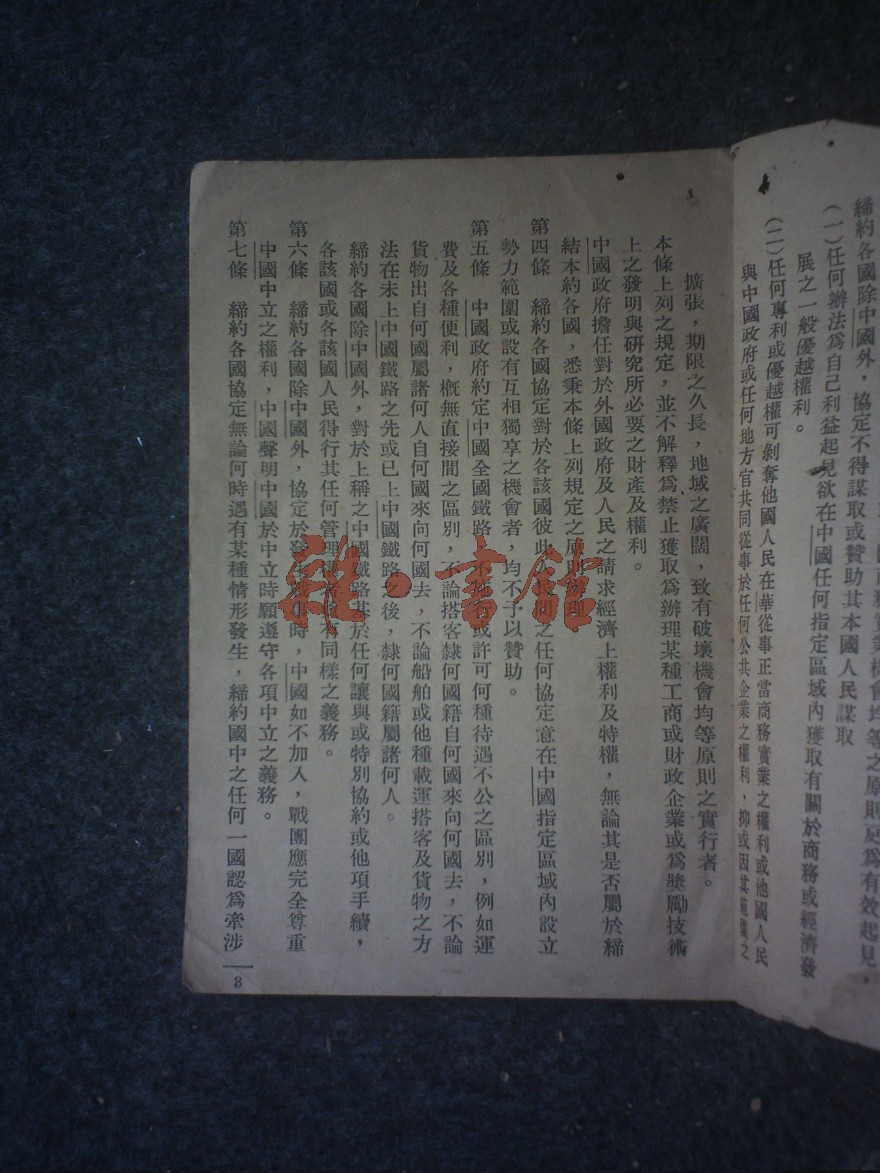 務實業機會均等之原則更爲有效起見，
締約各國除中國外，協定不得謀取或贊助其本國人民謀取
（一）任何辦法爲自己利益起見欲在中國任何指定區域內獲取有關於商務或經濟發
展之一般優越權利。
（二）任何專利或優越權可剝奪他國人民在華從事正當商務實業之權利或他國人民
與中國政府或任何地方官共同從事於任何公共企業之權利，抑或因其範圍之
擴張，期限之久長，地域之廣闊，致有破壞機會均等原則之實行者。
本條上列之規定，並不解釋爲禁止獲取爲辦理某種工商或財政企業或爲獎勵技術
上之發明與研究所必要之財產及權利。
中國政府擔任對於外國政府及人民之請求經濟上權利及特權，無論其是否屬於締
結本約各國，悉秉本條上列規定之原則辦理
第四條　締約各國協定對於各該國彼此人民間之任何協定意在中國指定區域內設立
勢力範圍或設有互相獨享之機會者，均不予以贊助。
第五條　中國政府約定中國全國鐵路，不施行或許可何種待遇不公之區別，例如運
費及各種便利，概無直接間之區別，不論搭客隸何國籍自何國來向何國去，不論
貨物出自何國屬諸何人自何國來向何國去，不論船舶或他種載運搭客及貨物之方
法在未上中國鐵路之先或已上中國鐵路之後，隸何國籍屬諸何人。
締約各國除中國外，對於上稱之中國鐵路基於任何讓與或特別協約或他項手續，
各該國或各該國人民得行其任何管理權者負有同樣之義務。
第六條　締約各國除中國外，協定於發生戰事時，中國如不加入，戰團應完全尊重
中國中立之權利，中國聲明中國於中立時願遵守各項中立之義務。
第七條　締約各國協定無論何時遇有某種情形發生，締約國中之任何一國認爲牽涉
8
雜·書館